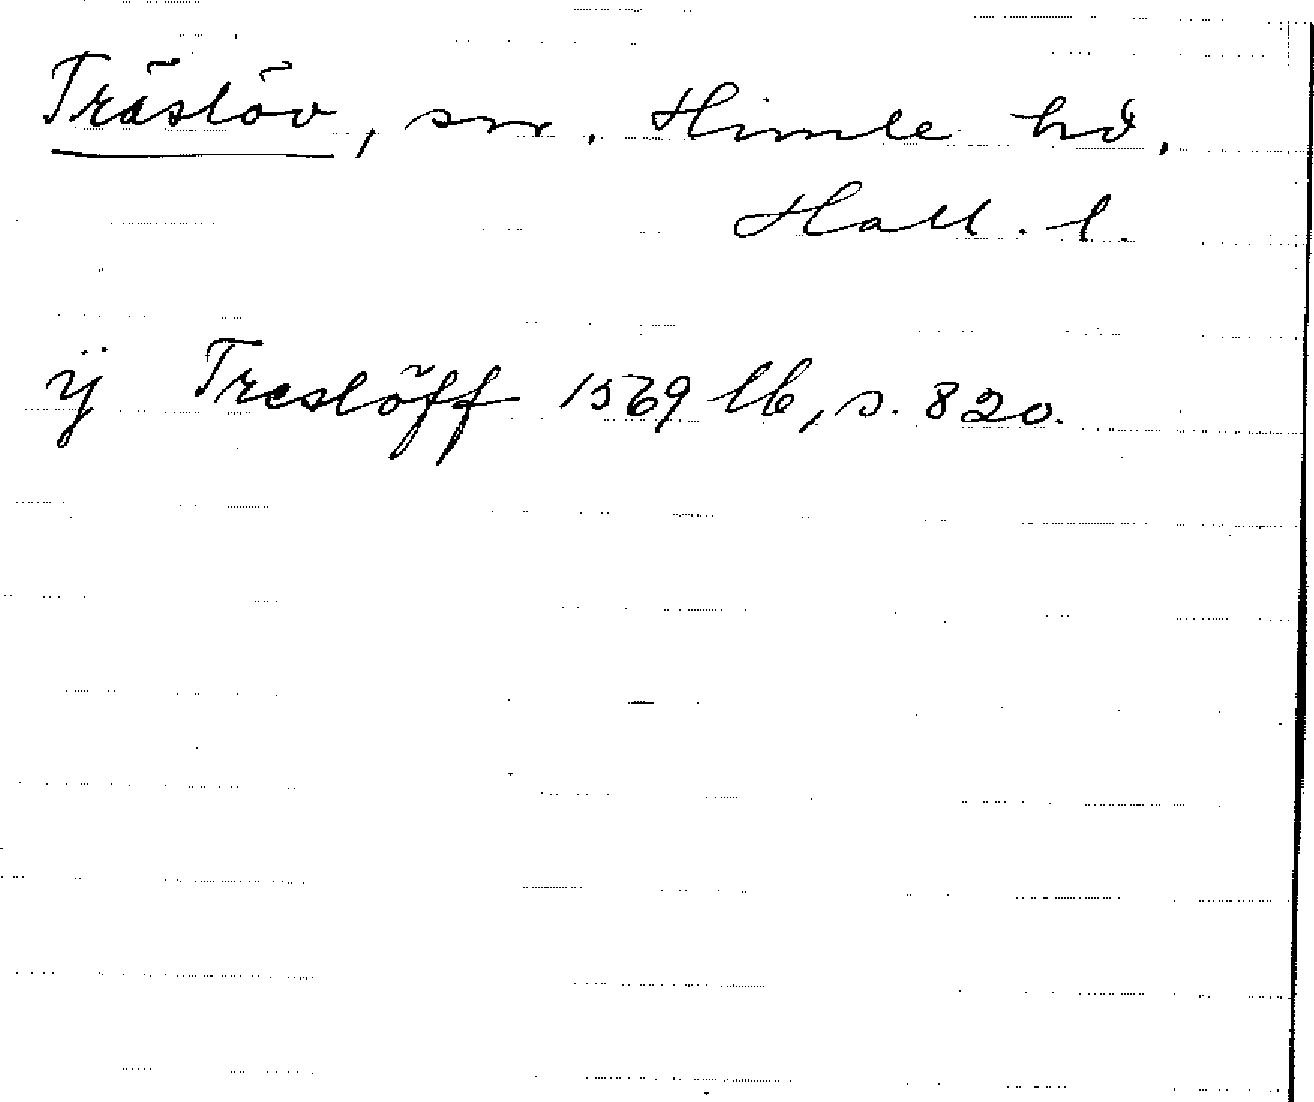 Träslöv, sn. Himle hd.
Hall. l.
ÿ Treslöff 1569 lb, s. 820.